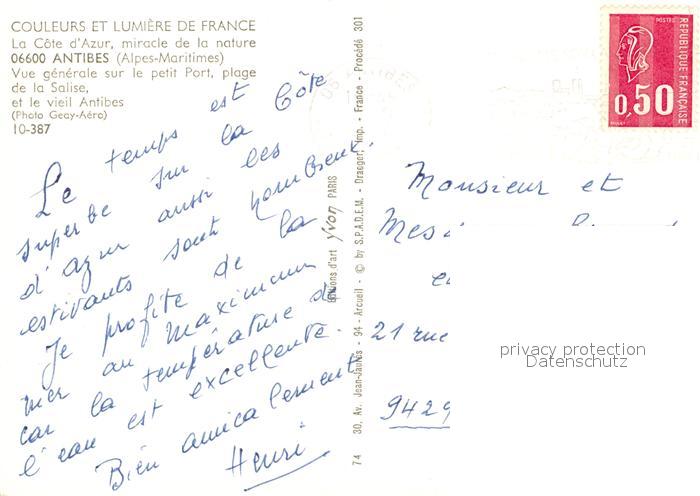 COULEURS ET LUMIÈRE DE FRANCE
La Côte d'Azur, miracle de la nature
06600 ANTIBES (Alpes-Maritimes)
Vue générale sur le petit Port, plage
de la Salise,
et le vieil Antibes
(Photo Geay-Aéro)
10-387
Le temps est
superbe sur la Côte
d'azur aussi les
estivants sont nombreux.
Je profite de la
mer au maximum
car la température de
l'eau est excellente.
Bien amicalement
Henri
74 30, Av. Jean-Jaurès - 94 - Arcueil - © by S.P.A.D.E.M. - Draeger, Imp. - France - Procédé 301
Editions d'art Yvon PARIS
POSTES
REPUBLIQUE FRANÇAISE
0,50
Monsieur et
21 rue
9429
privacy protection
Datenschutz